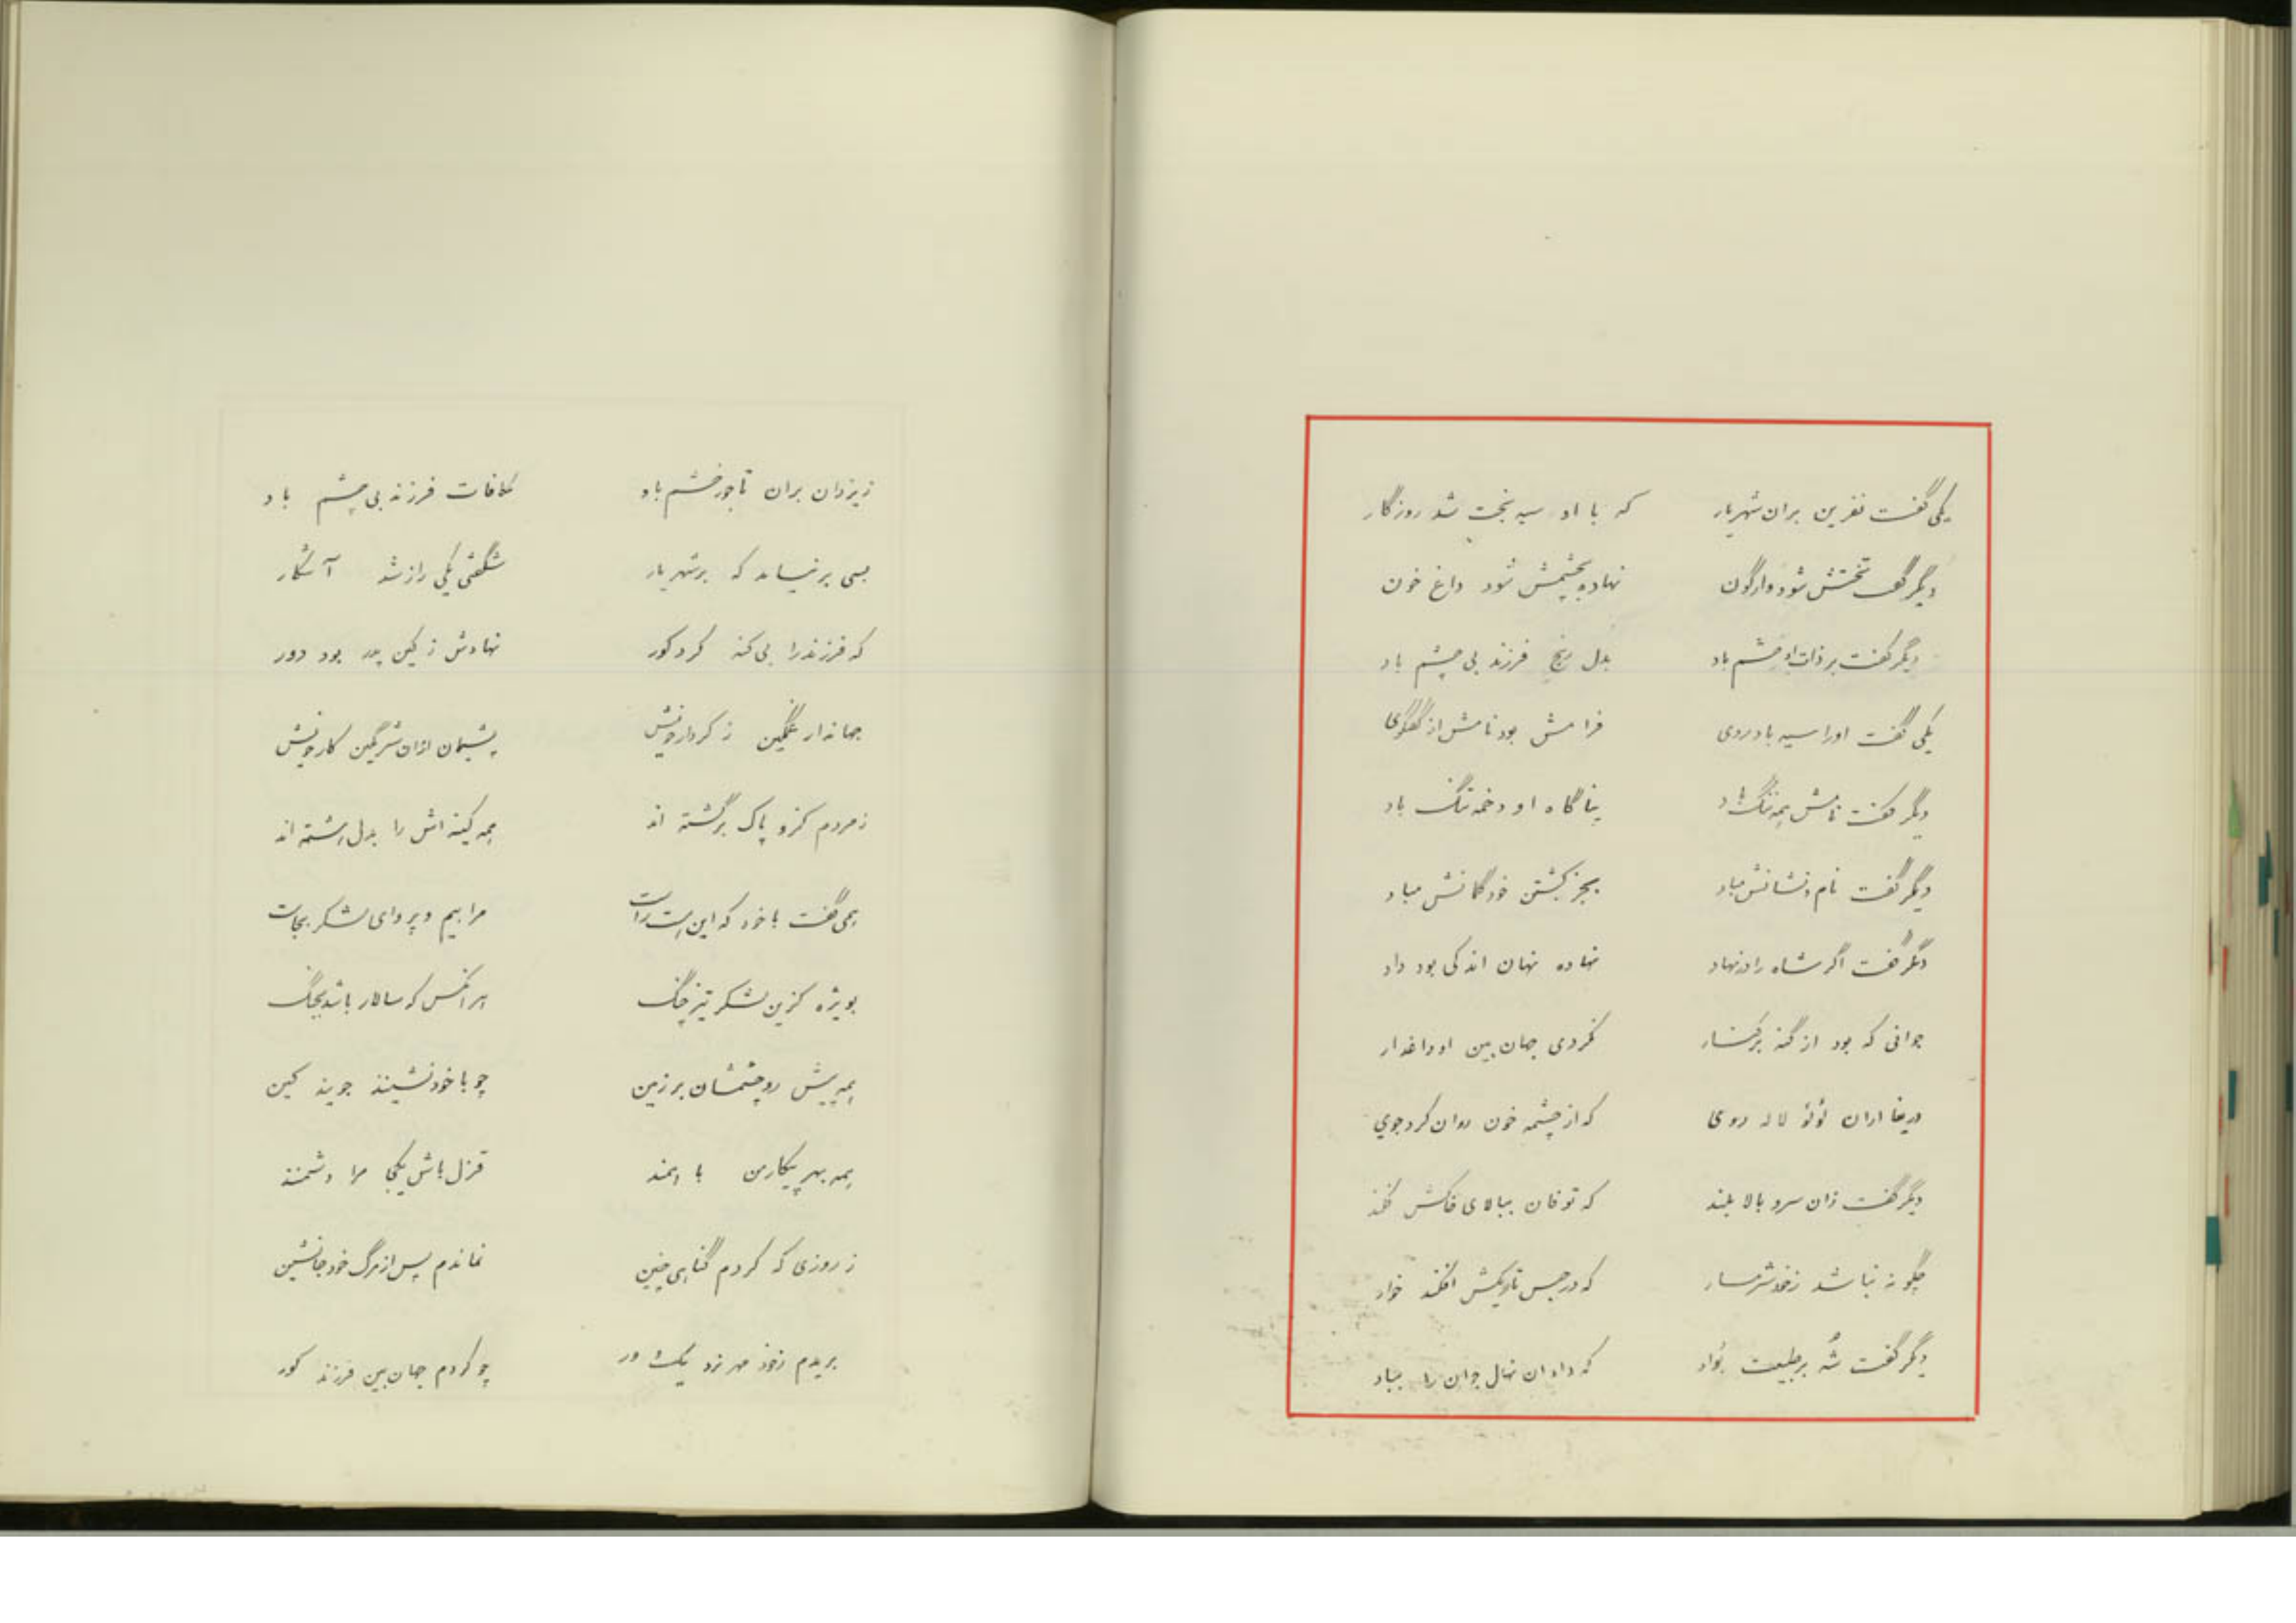 یکی گفت نفرین بران شهریار که با او سیه بخت شد روزگار
دیگر گفت تختش شود واژگون نهاده بچشمش شود داغ خون
دیگر گفت بر ذات او خشم باد بدل رنج فرزند بی چشم باد
یکی گفت اورا سیه باد روی فرامش بود نامش از گفتگوی
دیگر گفت نامش همه ننگ باد پناگاه او دخمه تنگ باد
دیگر گفت نام و نشانش مباد بجز کشتن خود گمانش مباد
دگر گفت اگر شاه را در نهاد نهاده نهان اندکی بود داد
جوانی که بود از گنه برکنار نکردی جهان بین او داغدار
دریغا ازان لؤلؤ لاله روی که از چشمه خون روان کرد جوي
دیگر گفت زان سرو بالا بلند که توفان ببالای فکند
چگونه نباشد زخود شرمسار که در حبس تاریکش افکند خوار
دیگر گفت شه بر طبیعت بواد که داد ان نهال جوان را بباد
زیزدان بران تاجور خشم باد مکافات فرزند بی چشم باد
بسی بر نیامد که بر شهریار شگفتی یکی راز شد آشکار
که فرزند را بی گنه کرد کور نهادش ز کین پدر بود دور
جهاندار غمگین ز کردار خویش پشیمان ازان شرمگین کار خویش
زمردم کزو پاک برگشته اند همه کینه اش را بدل رشته اند
همی گفت با خود که این است راست مرا بیم و پروای لشکر بجاست
بویژه کزین لشکر تیز چنگ هر انکس که سالار باشد بجنگ
همه پیش رو چشمشان بر زمین چو با خود نشینند جویند کین
همه بهر پیکار من با همند قزل باش یکجا مرا دشمنند
ز روزی که کردم گناهی چنین نماندم پس از مرگ خود جانشین
بریدم زخود مهر نزدیک و دور چو کردم جهان بین فرزند کور